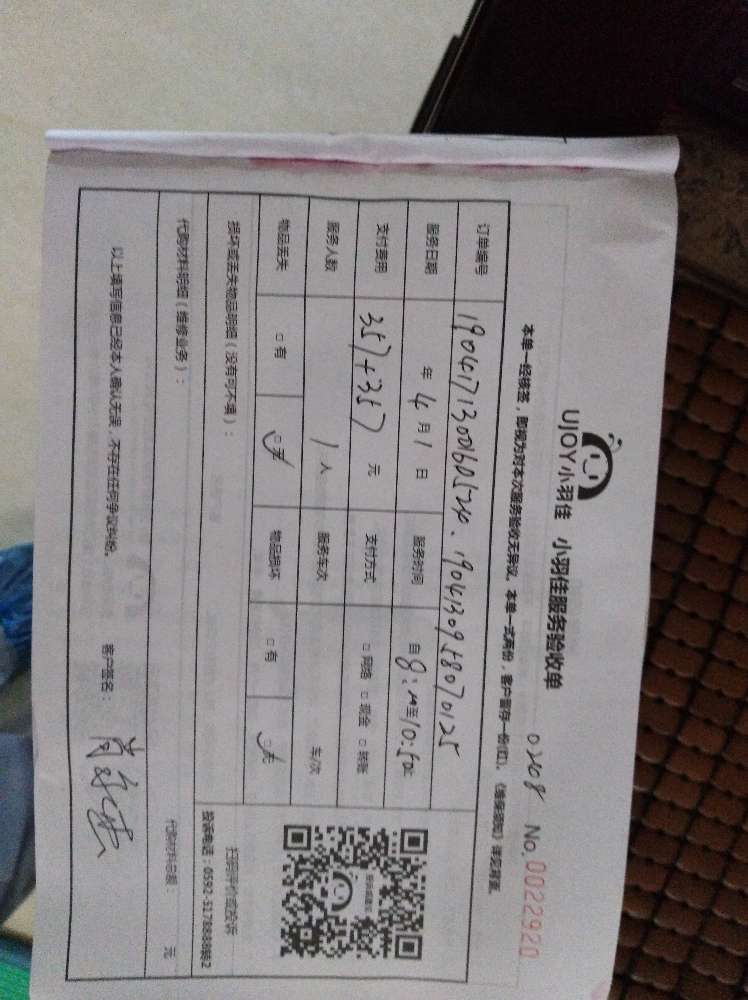 UJOY小羽佳 小羽佳服务验收单
0268 No.0022920
本单一经核签，即视为对本次服务验收无异议。本单一式两份，客户暂存一份(红)。《维保须知》详见背面。
订单编号 1904171300160524. 1904130958070125
服务日期 年 4月1日 服务时间 自8: 至10:50
支付费用 357+357 元 支付方式 □网络 □现金 □转账
服务人数 1人 服务车次 车/次
物品丢失 □有 □无 物品损坏 □有 □无
损坏或丢失物品明细（没有可不填）：
扫码评价或投诉
投诉电话：0592-5178888转2
代购材料明细（维修业务）：
代购材料总额： 元
以上填写信息已经本人确认无误，不存在任何争议纠纷。 客户签名：